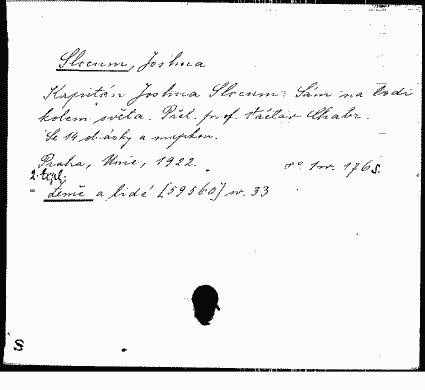 Slocum, Joshua
Kapitán Joshua Slocum: Sám na lodi
kolem světa. Přel. prof. Václav
Se 14 obrázky a mapkou.
Praha, Unie, 1922. 8° 1 sv. 176 s.
2. expl.
= Země a lidé [59560] sv. 33
S